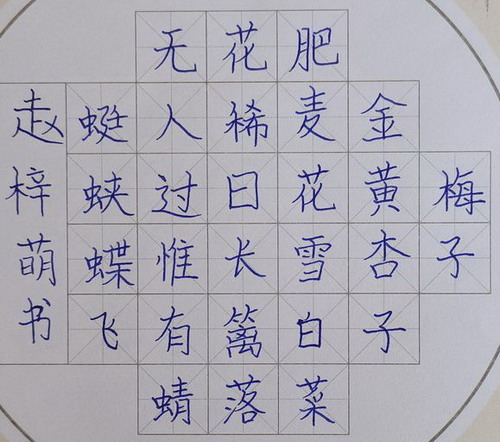 梅子
金黄杏子
肥麦花雪白菜
花稀日长篱落
无人过惟有蜻
蜓蛱蝶飞
赵梓萌书